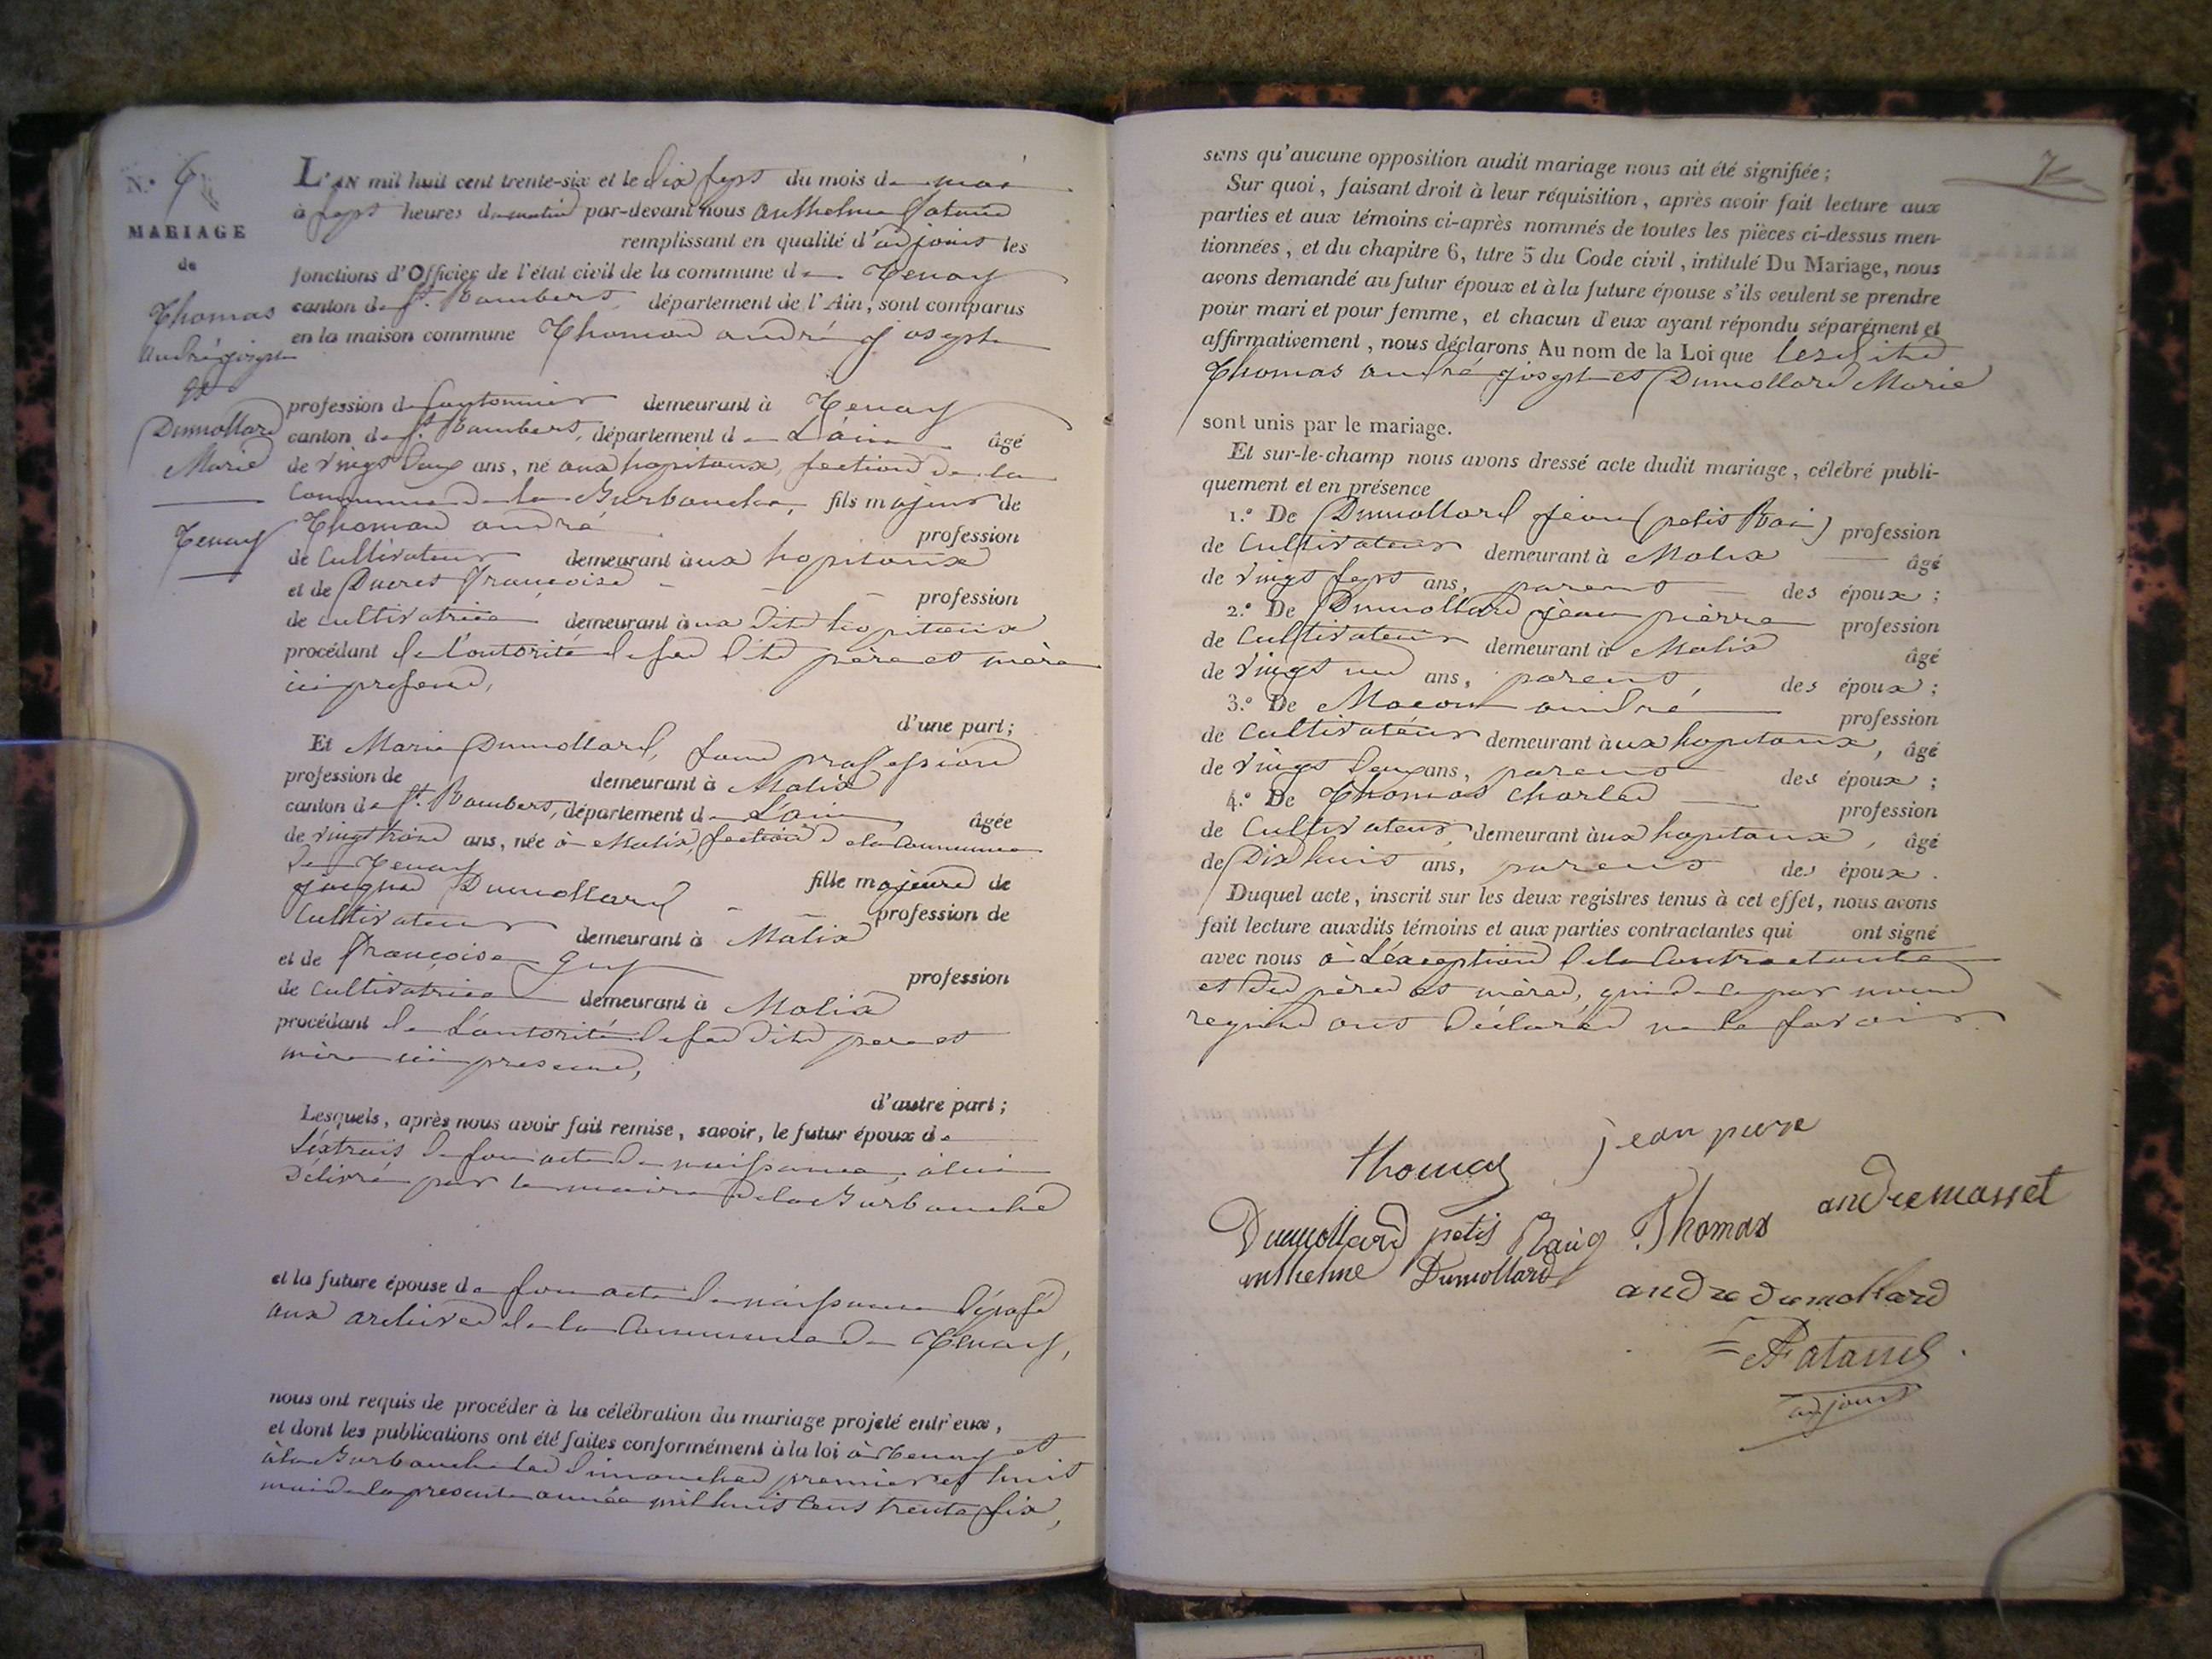 N.° 6
MARIAGE
de
Thomas
andré joseph
et
Dumollard
Marie
Tenay
L'AN mil huit cent trente-six et le dix sept du mois de mai
à sept heures du matin par-devant nous anthelme
remplissant en qualité d'adjoint les
fonctions d'Officier de l'état civil de la commune de Tenay
canton de St. Rambert, département de l'Ain, sont comparus
en la maison commune Thomas andré joseph
profession de cantonnier demeurant à Tenay
canton de St. Rambert, département de L'ain âgé
de vingt deux ans, né aux hopitaux, section de la
commune de la Burbanche, fils majeur de
Thomas andré profession
de cultivateur demeurant àux hopitaux
et de Ducret françoise profession
de cultivatrice demeurant àux dits hopitaux
procédant de l'autorité de ses dits père et mère
ici présens,
d'une part;
Et Marie Dumollard, sans profession
profession de demeurant à Malix
canton de St. Rambert, département de L'ain âgée
de vingt trois ans, née à Malix, section de la commune
de Tenay fille majeure de
jacques Dumollard profession de
cultivateur demeurant à Malix
et de françoise Guy profession
de cultivatrice demeurant à Malix
procédant de L'autorité de ses dits pere et
mère ici presens,
d'autre part;
Lesquels, après nous avoir fait remise, savoir, le futur époux de
L'extrait de son acte de naissance, à lui
délivré par le maire de la Burbanche
et la future épouse de son acte de naissance déposé
aux archives de la commune de Tenay,
nous ont requis de procéder à la célébration du mariage projeté entr'eux,
et dont les publications ont été faites conformément à la loi à Tenay et
à la Burbanche les dimanches premier et huit
mai de la presente année mil huit cent trente six,
7
sans qu'aucune opposition audit mariage nous ait été signifiée;
Sur quoi, faisant droit à leur réquisition, après avoir fait lecture aux
parties et aux témoins ci-après nommés de toutes les pièces ci-dessus men-
tionnées, et du chapitre 6, titre 5 du Code civil, intitulé Du Mariage, nous
avons demandé au futur époux et à la future épouse s'ils veulent se prendre
pour mari et pour femme, et chacun d'eux ayant répondu séparément et
affirmativement, nous déclarons Au nom de la Loi que lesdits
Thomas andré joseph et Dumollard Marie
sont unis par le mariage.
Et sur-le-champ nous avons dressé acte dudit mariage, célébré publi-
quement et en présence
1.° De Dumollard jean (petit ) profession
de cultivateur demeurant à Malix âgé
de vingt sept ans, parent des époux;
2.° De Dumollard jean pierre profession
de cultivateur demeurant à Malix âgé
de vingt un ans, parent, des époux;
3.° De andré profession
de cultivateur demeurant àux hopitaux, âgé
de vingt deux ans, parent des époux;
4.° De Thomas Charles profession
de cultivateur demeurant àux hopitaux, âgé
de Dix huit ans, parent des époux.
Duquel acte, inscrit sur les deux registres tenus à cet effet, nous avons
fait lecture auxdits témoins et aux parties contractantes qui ont signé
avec nous à L'exception de la Contractante
et des pères et mères, qui de ce par nous
requis ont déclarés ne le savoir
Thomas jean pierre
Dumollard petit Thomas andre masset
anthelme Dumollard
andre dumollard
adjoint